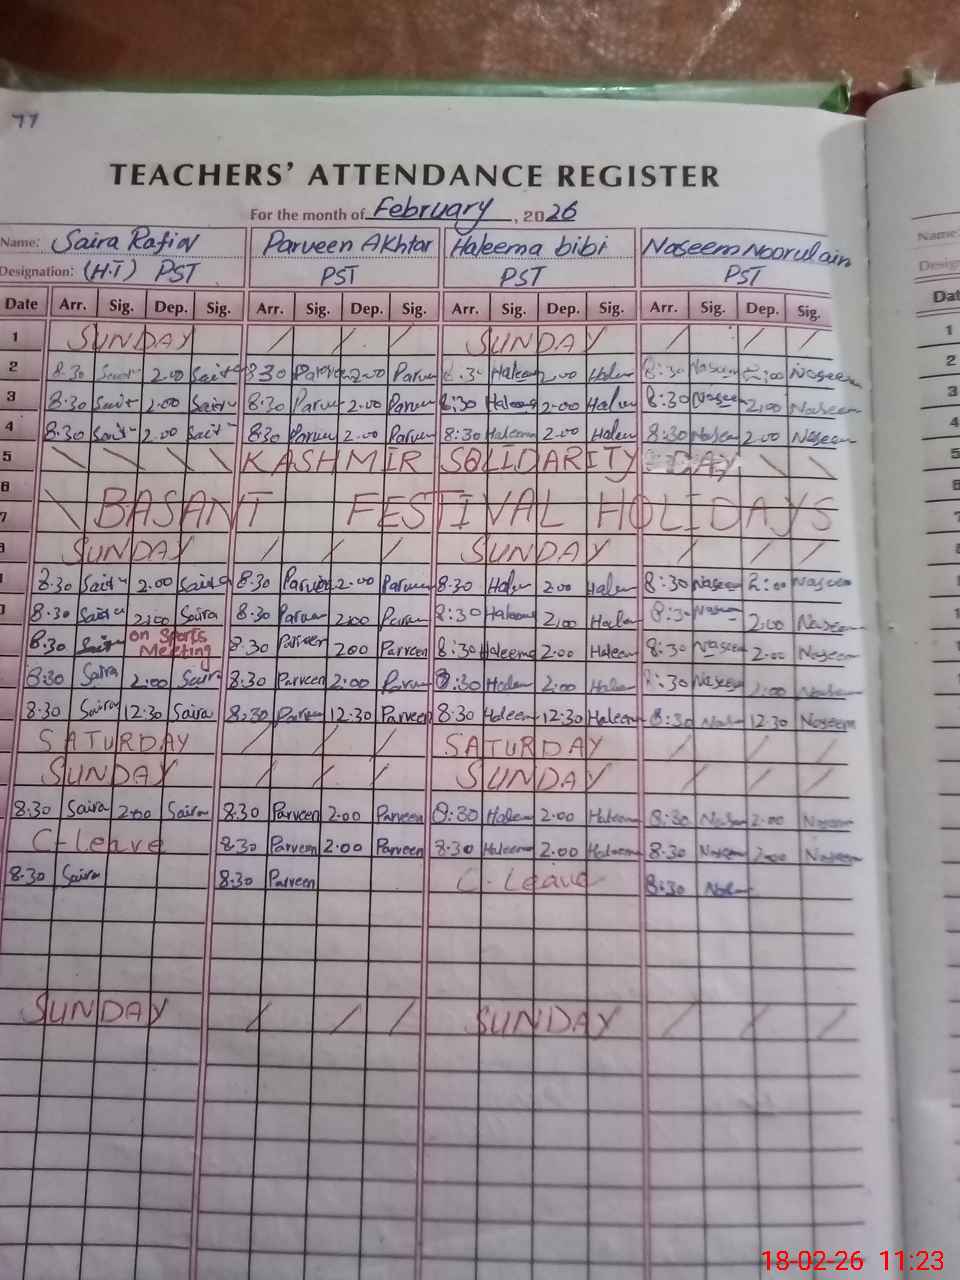 77
TEACHERS' ATTENDANCE REGISTER
For the month of February, 2026
Name: Saira Rafiq Parveen Akhtar Haleema bibi Naseem Noorulain
Designation: (H.T) PST PST PST PST
Date Arr. Sig. Dep. Sig. Arr. Sig. Dep. Sig. Arr. Sig. Dep. Sig. Arr. Sig. Dep. Sig.
1 SUNDAY / / / / SUNDAY / / / /
2 8.30 2.00 8.30 2.00 Parveen 2.00 8:30 Naseem 2:00 Naseem
3 8:30 2.00 8:30 2.00 8:30 Haleema 2.00 8:30 Naseem 2:00 Naseem
4 8:30 2.00 8:30 2.00 8:30 Haleema 2.00 8:30 Naseem 2.00 Naseem
5 \ \ \ \ KASHMIR SOLIDARITY DAY \ \
6
7 \ BASANT FESTIVAL HOLIDAYS
SUNDAY / / / SUNDAY / / / /
8.30 2.00 8.30 Parveen 2.00 8.30 2.00 8:30 Naseem 2:00 Naseem
8.30 2:00 Saira 8.30 2:00 8:30 Haleema 2:00 8:30 2:00 Naseem
8.30 on Sports Meeting 8.30 Parveen 2.00 Parveen 8:30 Haleema 2.00 Haleem 8:30 Naseem 2.00 Naseem
8:30 Saira 2:00 Saira 8:30 Parveen 2:00 8:30 2:00 8:30 Naseem 2:00
8:30 Saira 12:30 Saira 8:30 12:30 Parveen 8:30 Haleem 12:30 Haleem 8:30 12:30 Naseem
SATURDAY / / / SATURDAY / / / /
SUNDAY / / / SUNDAY / / / /
8:30 Saira 2:00 Saira 8:30 Parveen 2.00 Parveen 8:30 2.00 8:30 2.00 Naseem
C-Leave 8:30 Parveen 2.00 Parveen 8:30 Haleema 2.00 Haleema 8:30 Naseem 2:00 Naseem
8:30 Saira 8:30 Parveen C-Leave 8:30
SUNDAY / / / SUNDAY / / /
Name:
Desig
Dat
1
2
3
4
5
6
7
18-02-26 11:23